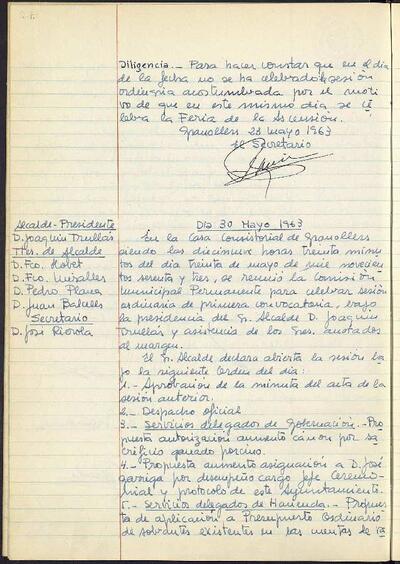 Diligencia.- Para hacer constar que en el día
de la fecha no se ha celebrado la sesión
ordinaria acostumbrada por el moti
vo de que en este mismo día se ce
lebra la Feria de la Ascensión.
Granollers 23 mayo 1963
El Secretario
Alcalde-Presidente
D. Joaquín Trullás
Ttes. de Alcalde
D. Fco. Llobet
D. Fco.
D. Pedro Plana
D. Juan
Secretario
D. José
Día 30 Mayo 1963
En la Casa Consistorial de Granollers
siendo las diecinueve horas treinta minu
tos del día treinta de mayo de mil novecien
tos sesenta y tres, se reunió la Comisión
Municipal Permanente para celebrar sesión
ordinaria de primera convocatoria, bajo
la presidencia del Sr. Alcalde D. Joaquín
Trullás y asistencia de los Sres. anotados
al margen.
El Sr. Alcalde declara abierta la sesión ba
jo la siguiente Orden del día:
1.- Aprobación de la minuta del acta de la
sesión anterior.
2.- Despacho oficial
3.- Servicios delegados de Gobernación.- Pro
puesta autorización aumento cánon por sa
crificio ganado porcino.
4.- Propuesta aumento asignación a D. José
Garriga por desempeño cargo Jefe Ceremo
nial y protocolo de este Ayuntamiento.
5.- Servicios delegados de Hacienda.- Propues
ta de aplicación a Presupuesto Ordinario
de sobrantes existentes en las cuentas de Va